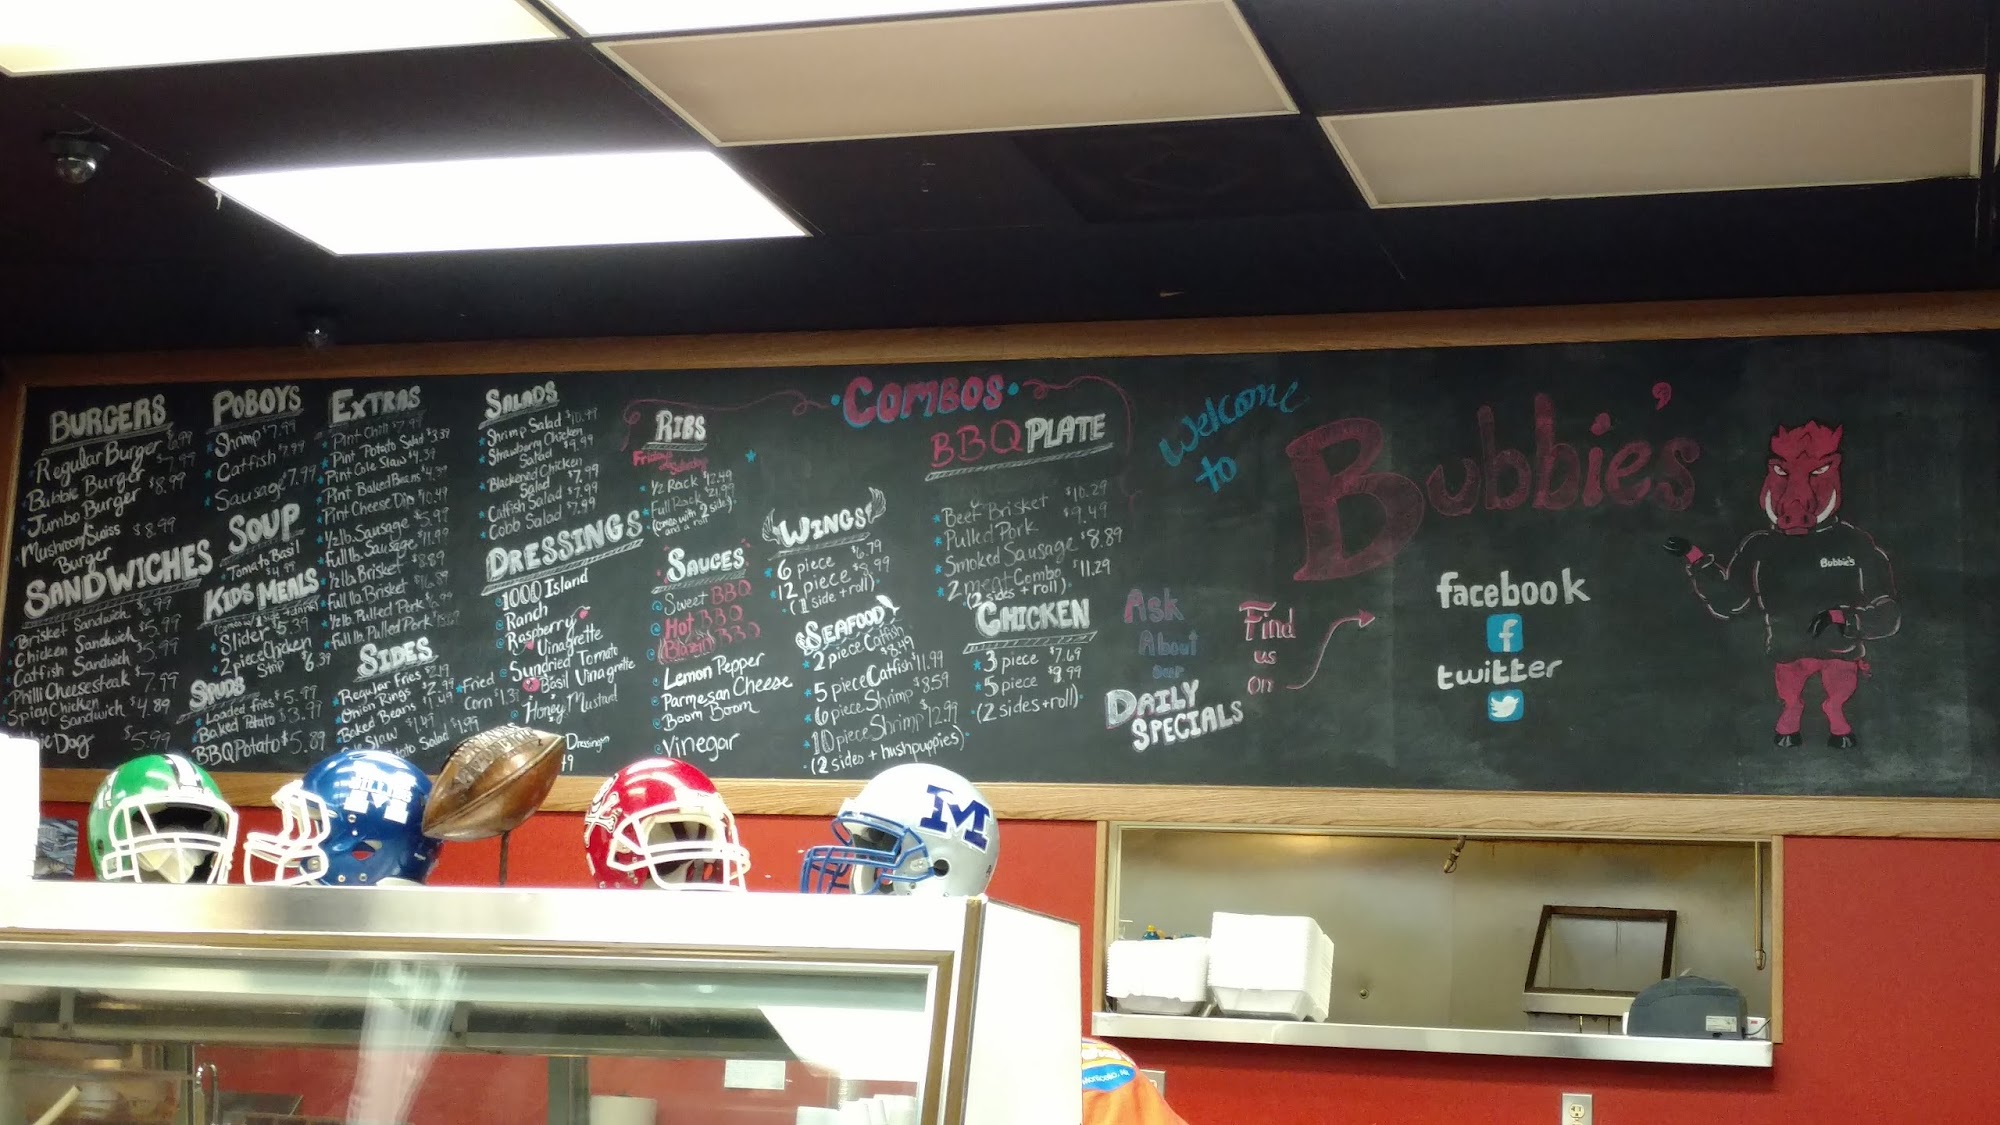 BURGERS
Regular Burger 6.99
Bubbie Burger $7.99
Jumbo Burger $8.99
Mushroom/Swiss
Burger $8.99
SANDWICHES
Brisket Sandwich $6.99
Chicken Sandwich $5.99
Catfish Sandwich $5.99
Philli Cheesesteak $7.99
Spicy Chicken
Sandwich $4.89
Dog $5.99
POBOYS
Shrimp $7.99
Catfish $7.99
Sausage $7.99
SOUP
Tomato Basil
$4.99
KIDS MEALS
Slider $5.39
2 piece Chicken
Strip $6.39
SPUDS
Loaded Fries $5.99
Baked Potato $3.97
BBQ Potato $5.89
EXTRAS
Pint Chili $7.99
Pint Potato Salad $3.39
Pint Cole Slaw $4.39
Pint Baked Beans $4.39
Pint Cheese Dip $10.49
1/2 lb. Sausage $5.99
Full lb. Sausage $11.99
1/2 lb. Brisket $8.89
Full lb. Brisket $16.89
1/2 lb. Pulled Pork $6.99
Full lb. Pulled Pork
SIDES
Regular Fries $2.19
Onion Rings $2.99
Baked Beans $1.49
Slaw $1.49
Potato Salad $1.99
Fried
Corn $1.39
SALADS
Shrimp Salad $10.99
Strawberry Chicken
Salad $9.99
Blackened Chicken
Salad $7.99
Catfish Salad $7.99
Cobb Salad $7.99
DRESSINGS
1000 Island
Ranch
Raspberry
Vinagrette
Sundried Tomato
Basil Vinagrette
Honey Mustard
Dressing
COMBOS
RIBS
Fridays
Saturday
1/2 Rack $12.49
Full Rack $21.99
(comes with 2 sides
and a roll)
SAUCES
Sweet BBQ
Hot BBQ
Blazin' BBQ
Lemon Pepper
Parmesan Cheese
Boom Boom
Vinegar
WINGS
6 piece $6.79
12 piece $8.99
(1 side + roll)
SEAFOOD
2 piece Catfish
$8.49
5 piece Catfish $11.99
6 piece Shrimp $8.59
10 piece Shrimp $12.99
(2 sides + hushpuppies)
BBQ PLATE
Beef Brisket $10.29
Pulled Pork $9.49
Smoked Sausage $8.89
2 meat Combo $11.29
(2 sides + roll)
CHICKEN
3 piece $7.69
5 piece $9.99
(2 sides + roll)
Welcome
to
Bubbie's
Ask
About
our
DAILY
SPECIALS
Find
us
on
facebook
f
twitter
Bubbie's
BILLIES
M
M